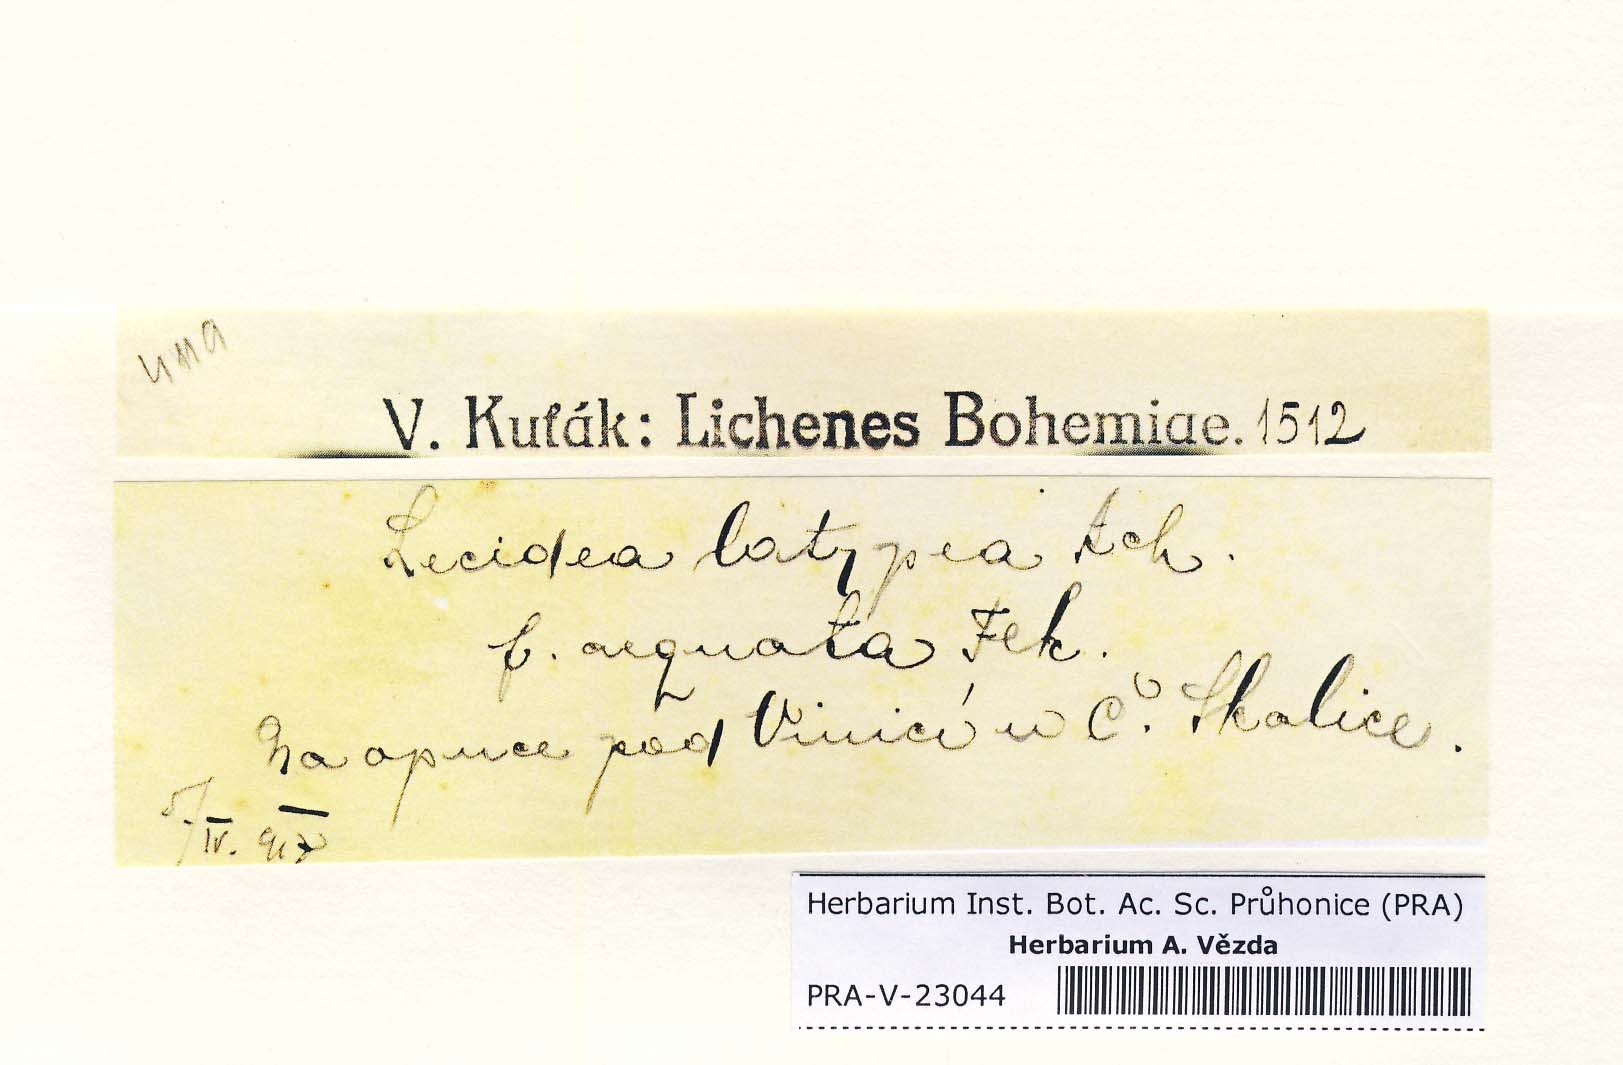 V. Kuťák: Lichenes Bohemiae. 1512
Lecidea latypea Ach.
f. aequata Flk.
Na opuce pod Vinicí u Č. Skalice.
5/IV. 917
Herbarium Inst. Bot. Ac. Sc. Průhonice (PRA)
Herbarium A. Vězda
PRA-V-23044